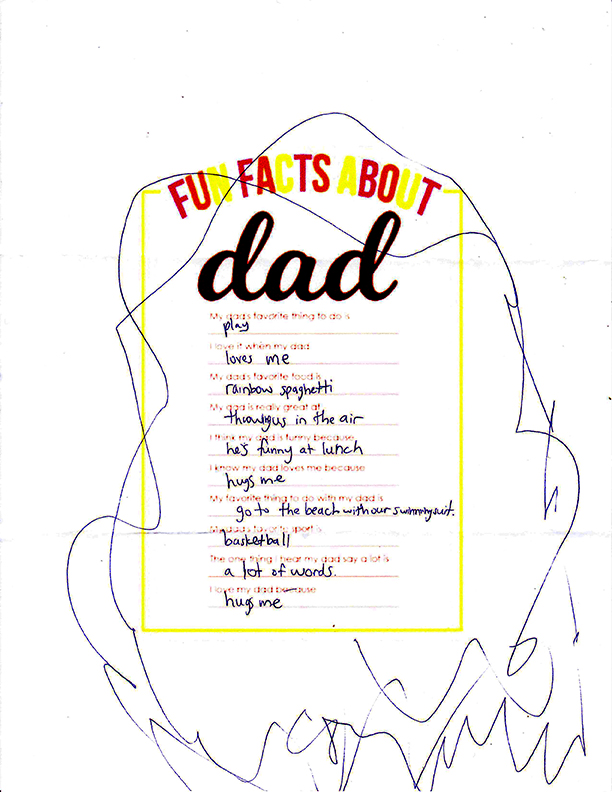 FUN FACTS ABOUT
dad
My dad's favorite thing to do is
play
I love it when my dad
loves me
My dad's favorite food is
rainbow spaghetti
My dad is really great at
throwing us in the air
I think my dad is funny because
he's funny at lunch
I know my dad loves me because
hugs me
My favorite thing to do with my dad is
go to the beach with our swimmysuit.
My dad's favorite sport is
basketball
The one thing I hear my dad say a lot is
a lot of words.
I love my dad because
hugs me